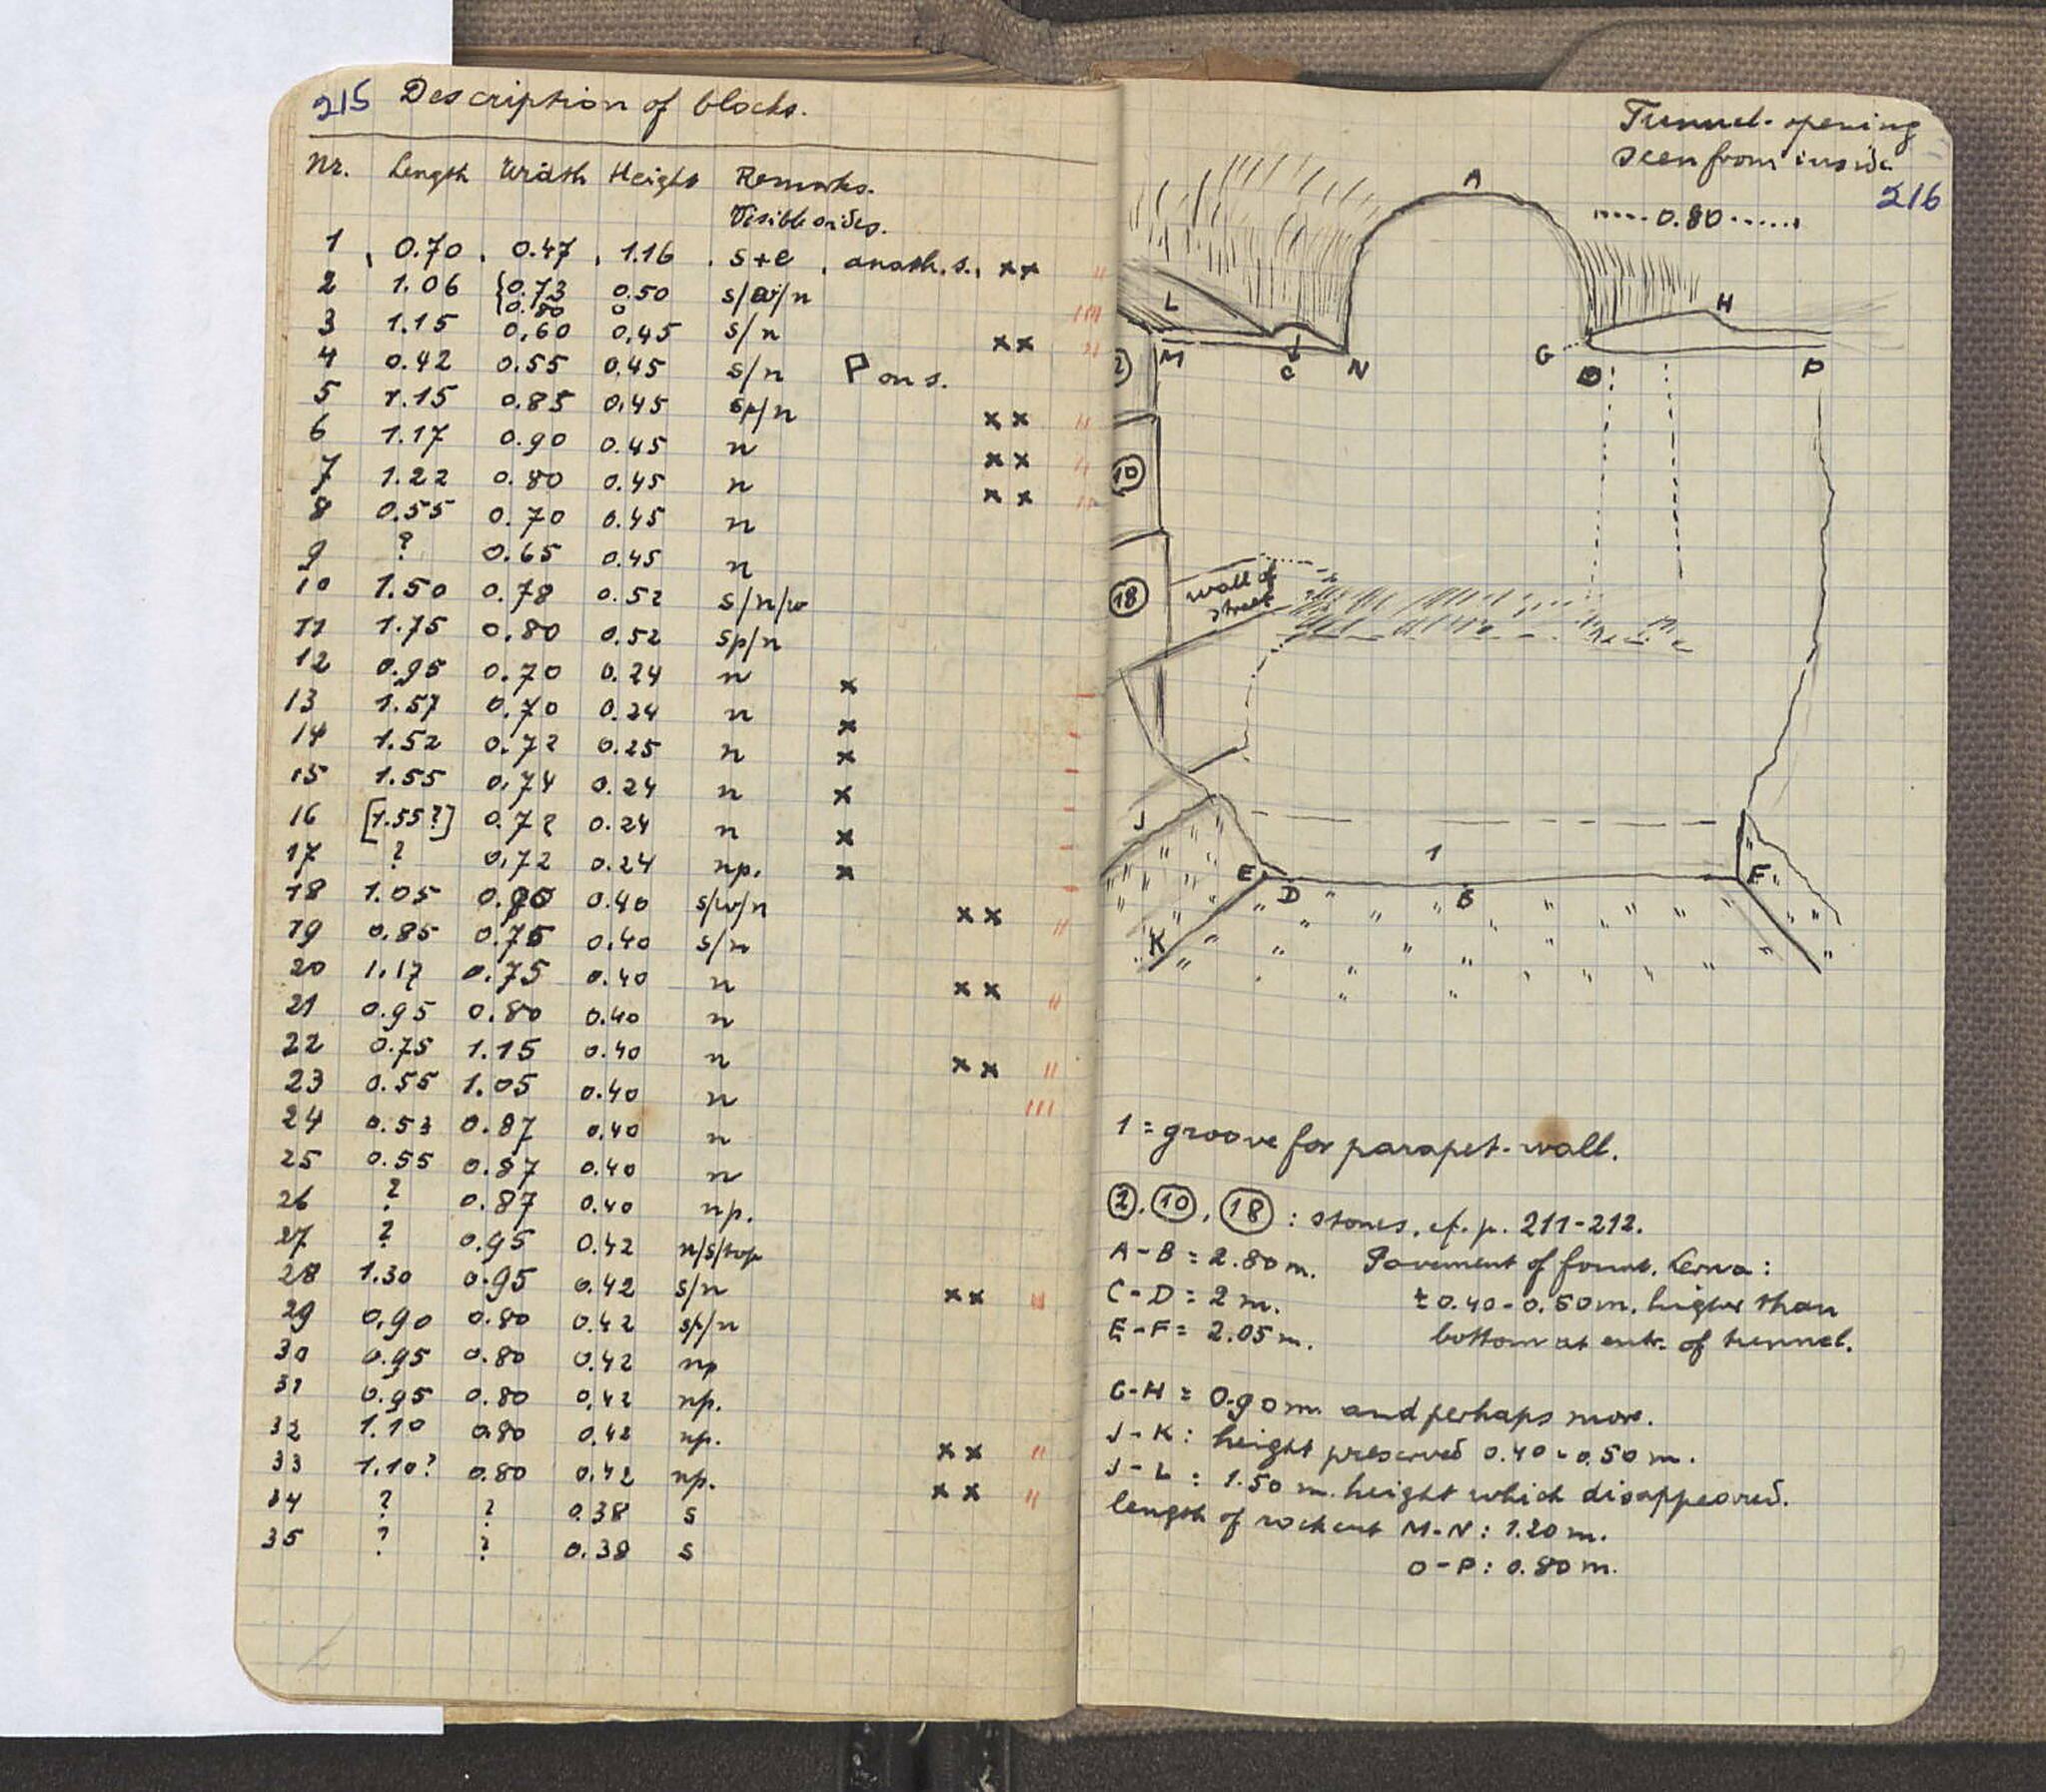 215 Description of blocks.
Nr. Length Width Height Remarks.
Visible sides.
1 0.70 0.47 1.16 s+e anath. s. ××
2 1.06 {0.73 0.50 s/w/n
0.80
3 1.15 0.60 0.45 s/n ××
4 0.42 0.55 0.45 s/n P on s.
5 1.15 0.85 0.45 sp/n ××
6 1.17 0.90 0.45 n ××
7 1.22 0.80 0.45 n ××
8 0.55 0.70 0.45 n
9 ? 0.65 0.45 n
10 1.50 0.78 0.52 s/n/w
11 1.75 0.80 0.52 sp/n
12 0.95 0.70 0.24 n ×
13 1.57 0.70 0.24 n ×
14 1.52 0.72 0.25 n ×
15 1.55 0.74 0.24 n ×
16 [1.55?] 0.72 0.24 n ×
17 ? 0.72 0.24 np. ×
18 1.05 0.40 s/w/n ××
19 0.85 0.75 0.40 s/n
20 1.17 0.75 0.40 n ××
21 0.95 0.80 0.40 n
22 0.75 1.15 0.40 n ××
23 0.55 1.05 0.40 n
24 0.53 0.87 0.40 n
25 0.55 0.87 0.40 n
26 ? 0.87 0.40 np.
27 ? 0.95 0.42 n/s/top
28 1.30 0.95 0.42 s/n ××
29 0.90 0.80 0.42 sp/n
30 0.95 0.80 0.42 np
31 0.95 0.80 0.42 np.
32 1.10 0.80 0.42 np. ××
33 1.10? 0.80 0.42 np. ××
34 ? ? 0.38 s
35 ? ? 0.38 s
Tunnel-opening
seen from inside
216
A
0.80
L H
M C N G O P
2
10
18
wall of
street
J 1
E D B F
K
1 = groove for parapet-wall.
2, 10, 18 : stones, cf. p. 211-212.
A-B = 2.80 m. Pavement of fount. Lerna:
C-D = 2 m. ± 0.40-0.50 m. higher than
E-F = 2.05 m. bottom at entr. of tunnel.
G-H = 0.90 m. and perhaps more.
J-K: height preserved 0.40-0.50 m.
J-L: 1.50 m. height which disappeared.
length of rock cut M-N: 1.20 m.
O-P: 0.80 m.